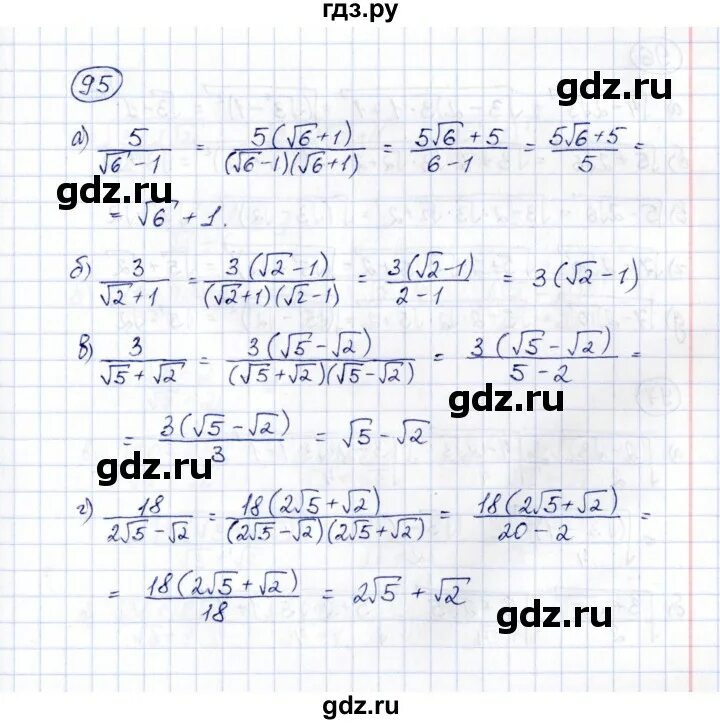 гдз.ру
95
gdz.ru
а) 5/(√6 - 1) = 5(√6 + 1)/((√6 - 1)(√6 + 1)) = (5√6 + 5)/(6 - 1) = (5√6 + 5)/5 =
gdz.ru
gdz.ru
= √6 + 1.
б) 3/(√2 + 1) = 3(√2 - 1)/((√2 + 1)(√2 - 1)) = 3(√2 - 1)/(2 - 1) = 3(√2 - 1)
в) 3/(√5 + √2) = 3(√5 - √2)/((√5 + √2)(√5 - √2)) = 3(√5 - √2)/(5 - 2) =
gdz.ru
= 3(√5 - √2)/3 = √5 - √2
gdz.ru
г) 18/(2√5 - √2) = 18(2√5 + √2)/((2√5 - √2)(2√5 + √2)) = 18(2√5 + √2)/(20 - 2) =
= 18(2√5 + √2)/18 = 2√5 + √2
gdz.ru
gdz.ru